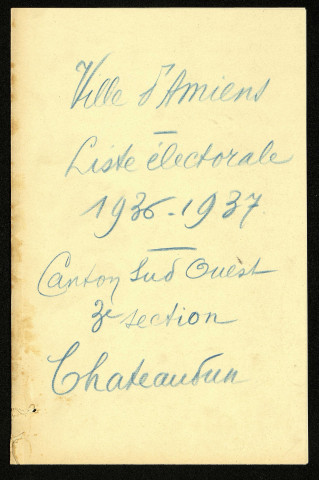 Ville d'Amiens
Liste électorale
1936-1937
Canton Sud Ouest
3e section
Chateaudun